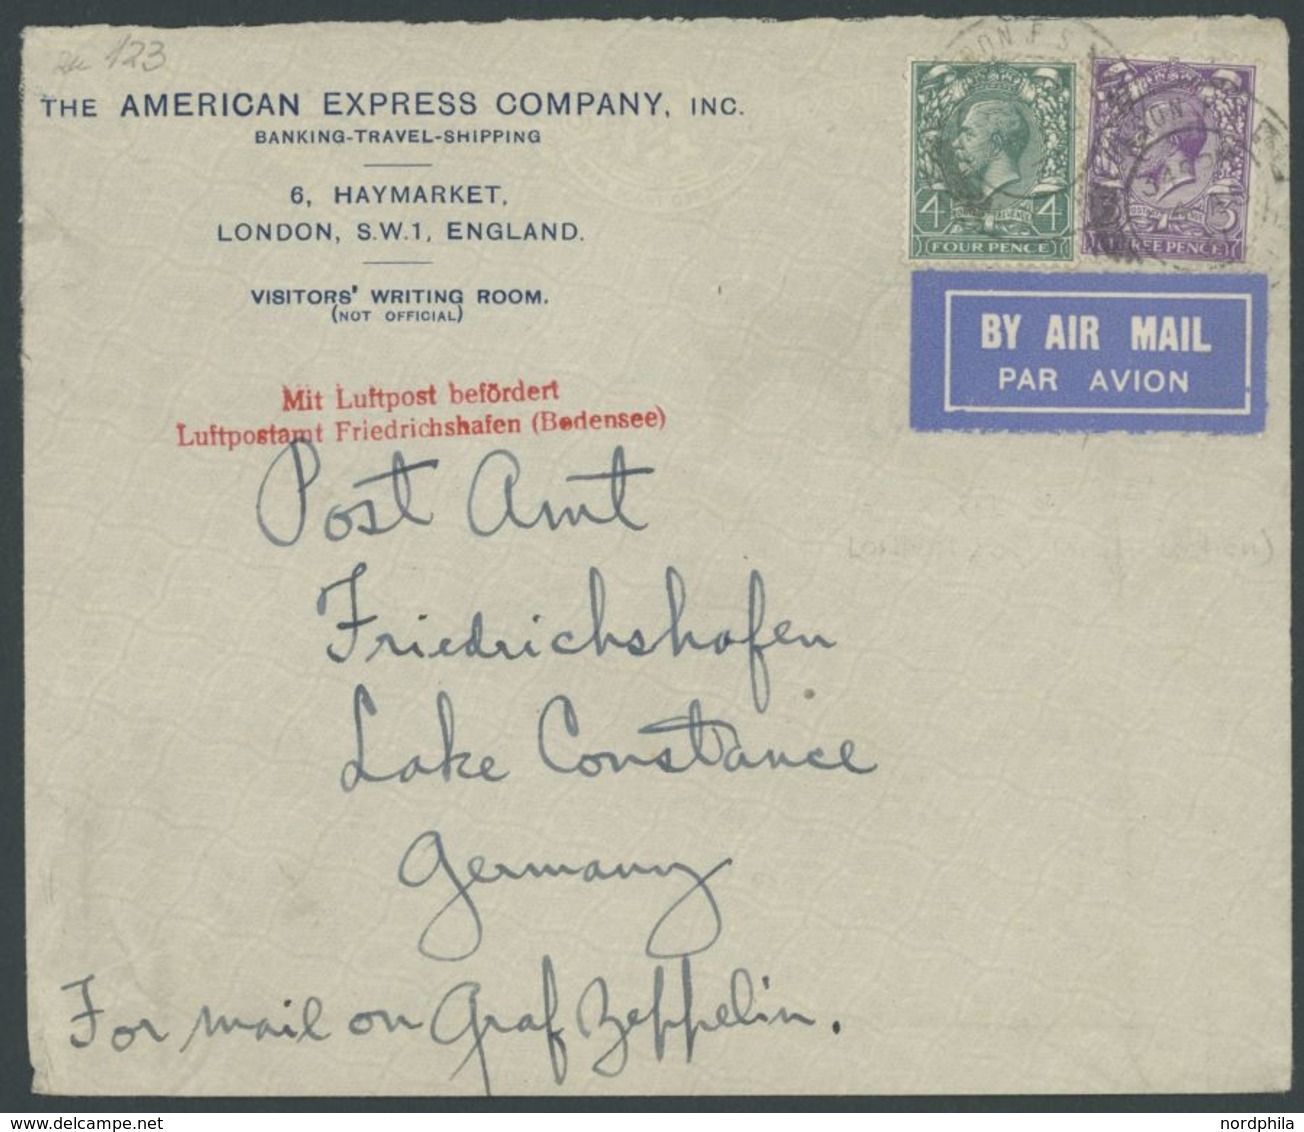 123
THE AMERICAN EXPRESS COMPANY, INC.
BANKING-TRAVEL-SHIPPING
6, HAYMARKET,
LONDON, S.W.1, ENGLAND.
VISITORS' WRITING ROOM.
(NOT OFFICIAL)
4 4
FOUR PENCE
3
THREE PENCE
BY AIR MAIL
PAR AVION
Mit Luftpost befördert
Luftpostamt Friedrichshafen (Bodensee)
Post Amt
Friedrichshafen
Lake Constance
Germany
For mail on Graf Zeppelin.
delcampe.net
nordphila